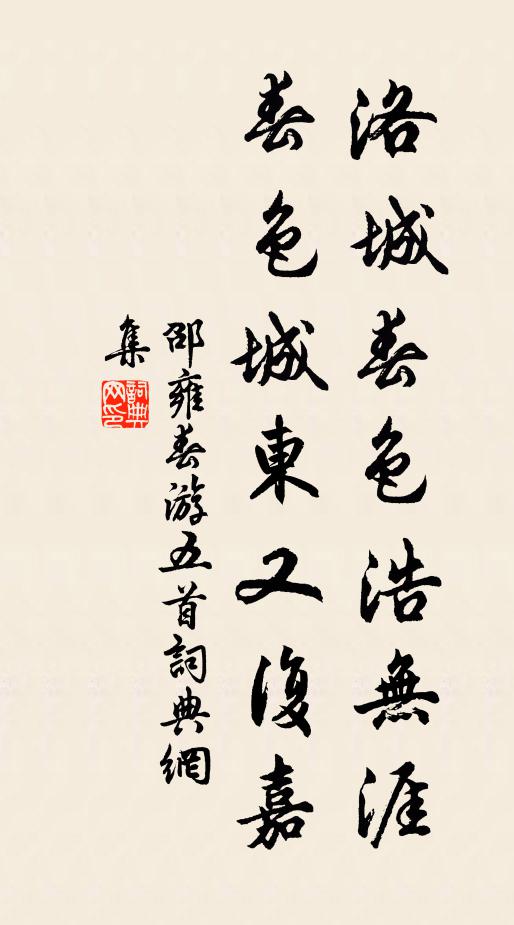 洛城春色浩無涯
春色城東又復嘉
邵雍春游五首詞典網
集
詞典
网印